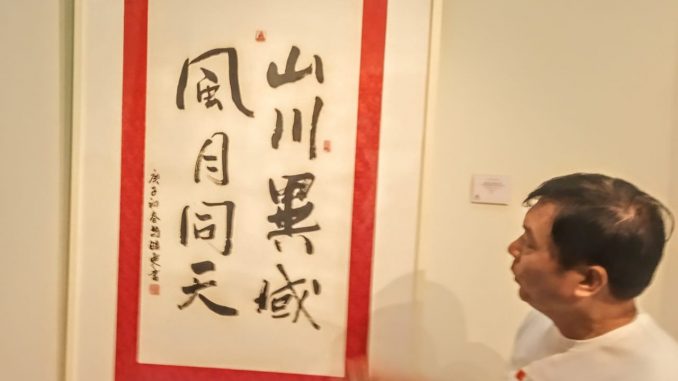 山川異域
風月同天
庚子初春